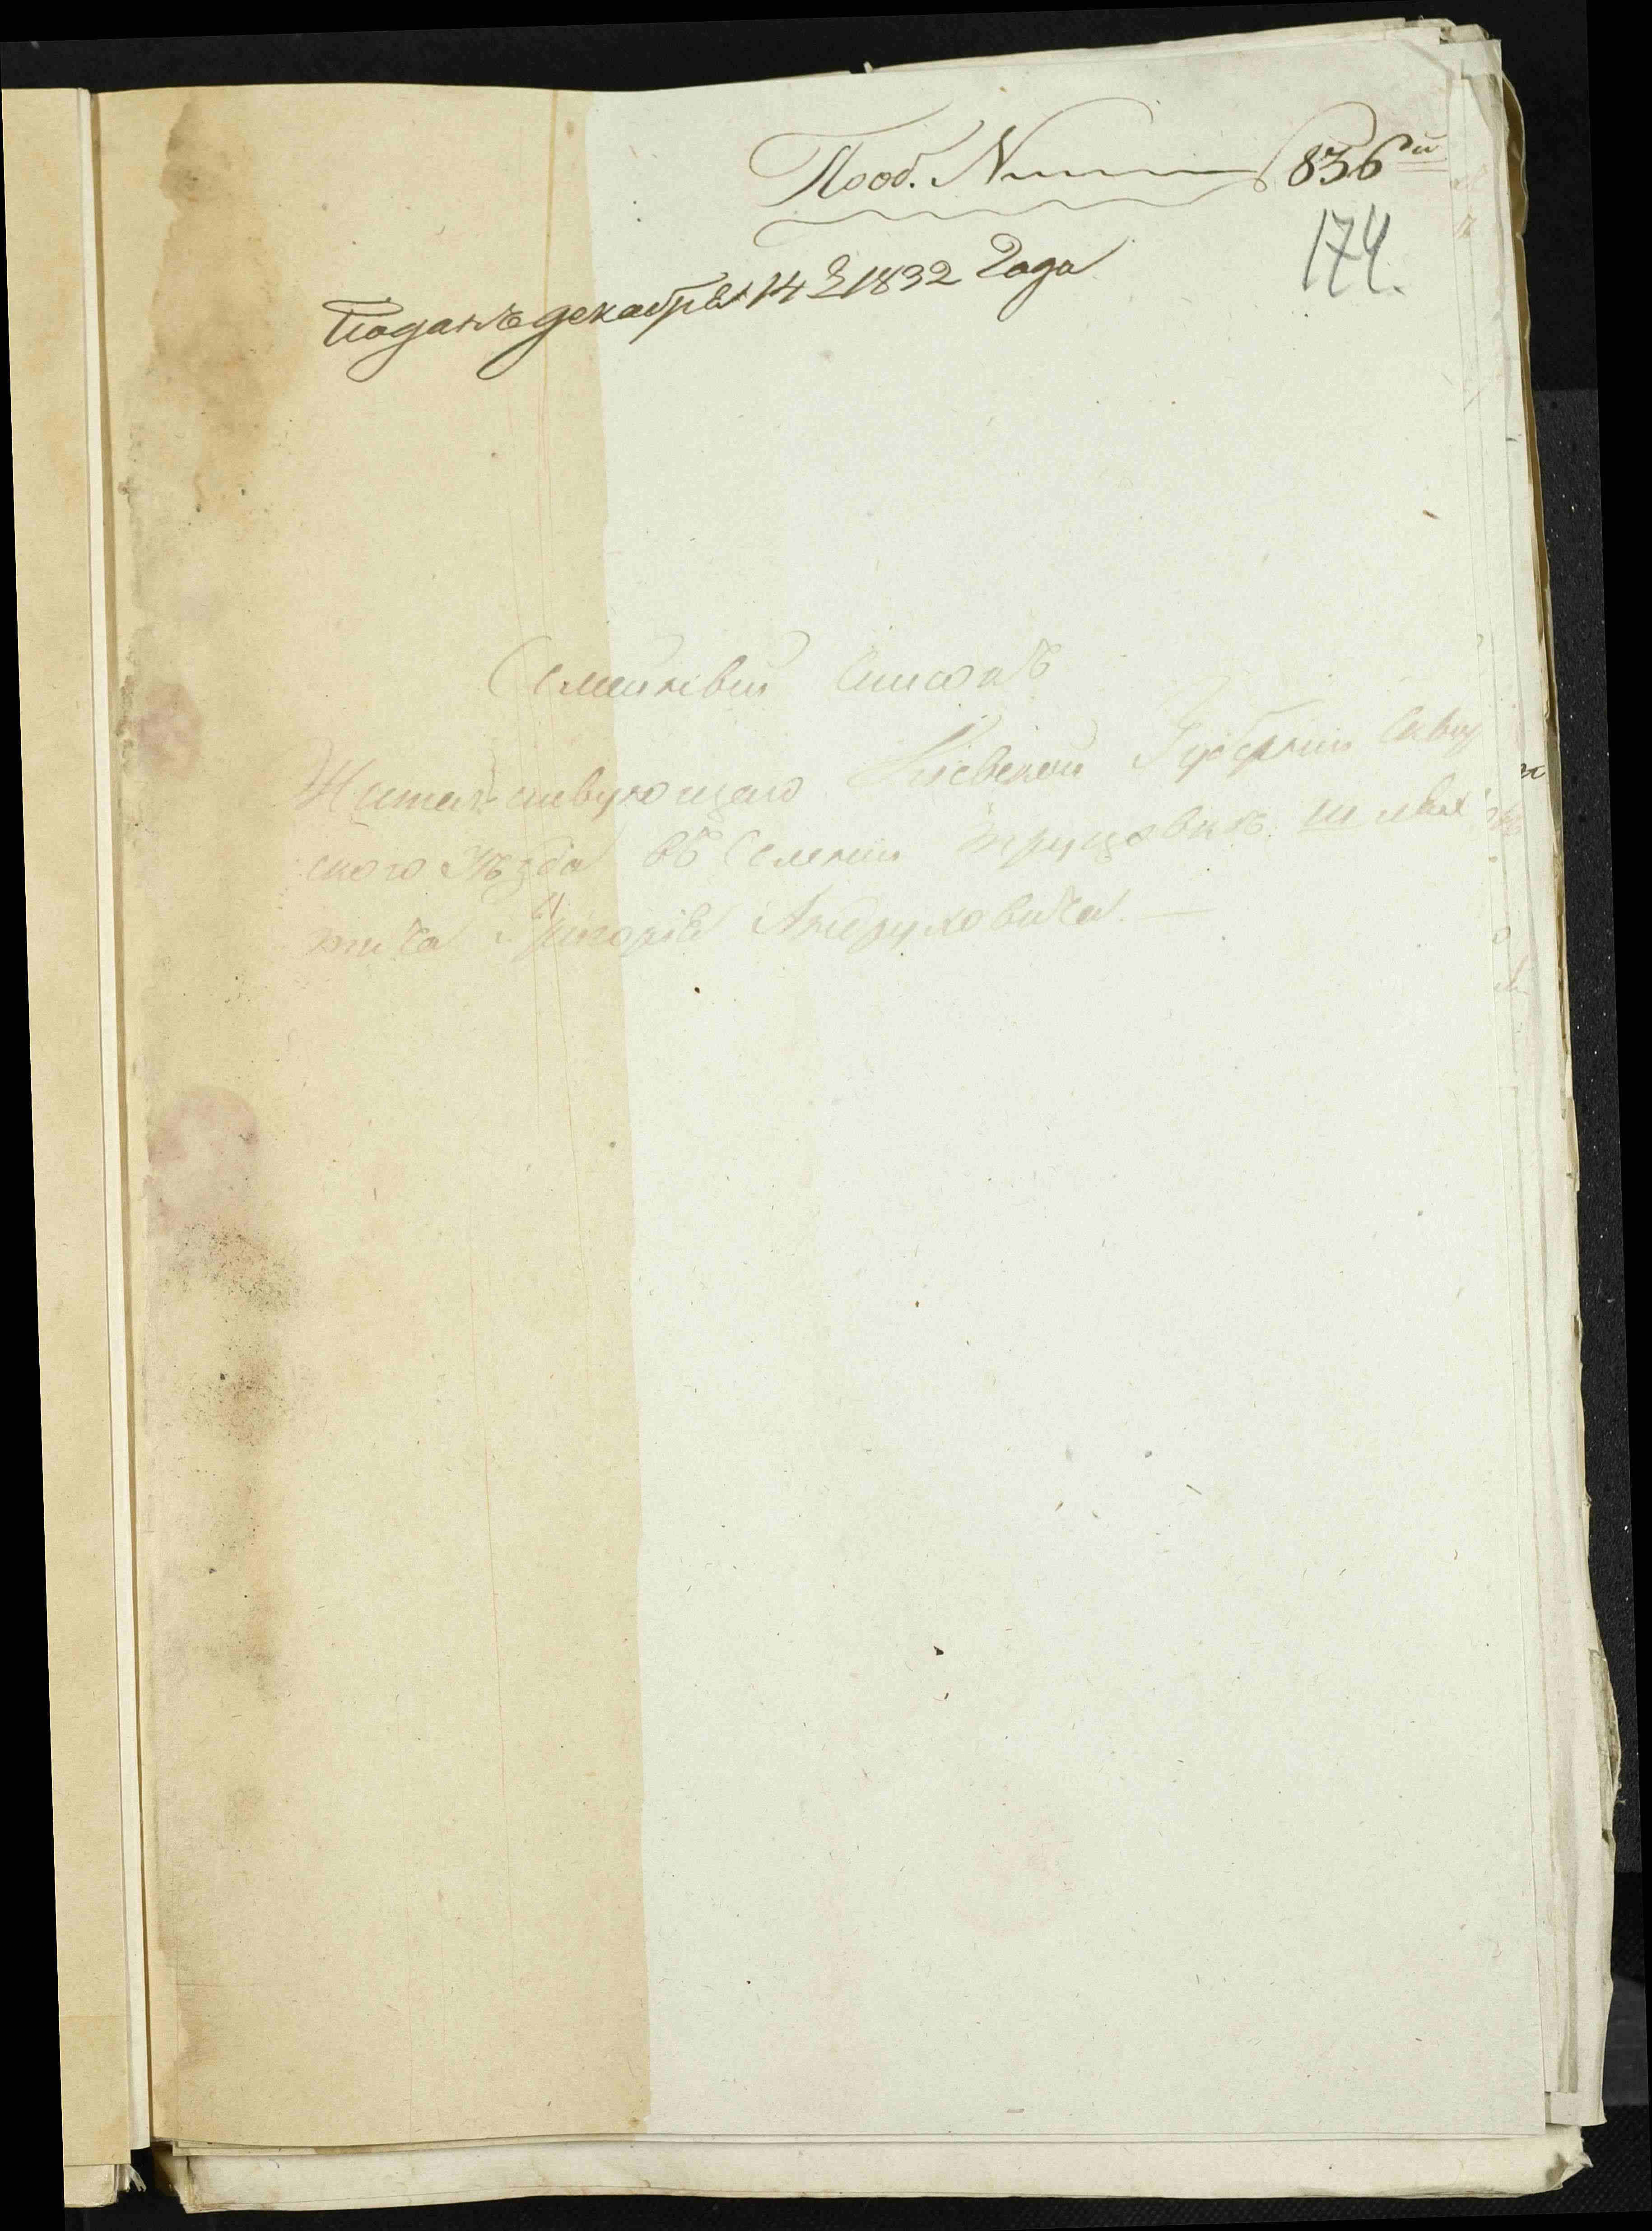 Пооб. N 836й
174.
Поданъ декабря 14 д 1832 Года
Семейный Списокъ
Жительствующаго Кіевской Губерніи Сквир
ского Уѣзда въ Селеніи шлях
тича Григорія Андруховича. —